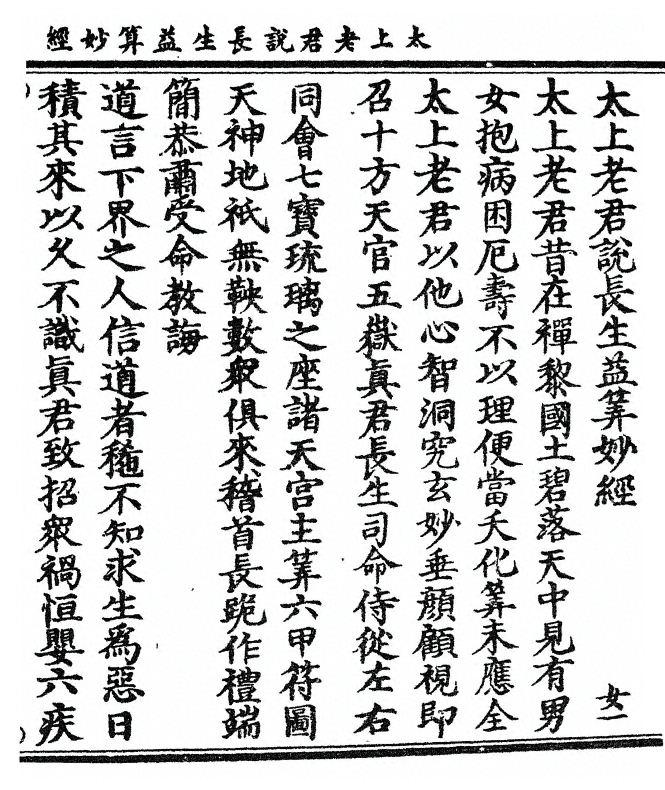 太上老君說長生益算妙經
太上老君說長生益筭妙經
女一
太上老君昔在禪黎國土碧落天中見有男
女抱病困厄壽不以理便當夭化筭未應全
太上老君以他心智洞究玄妙垂顔顧視即
召十方天官五嶽真君長生司命侍從左右
同會七寶琉璃之座諸天宫主筭六甲符圖
天神地祇無鞅數衆俱來稽首長跪作禮端
簡恭肅受命教誨
道言下界之人信道者稀不知求生爲惡日
積其來以久不識真君致招衆禍恒嬰六疾